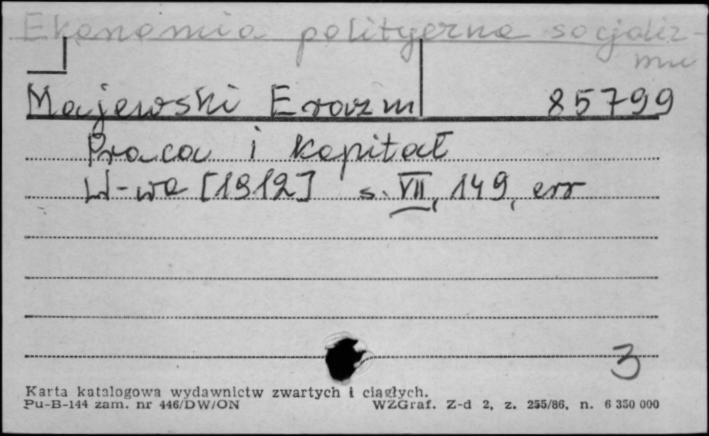 Ekonomia polityczna socjaliz-
mu
Majewski Erazm 85799
Praca i kapitał
W-wa [1912] s. VII, 149, err
3
Karta katalogowa wydawnictw zwartych i ciągłych.
Pu-B-144 zam. nr 446/DW/ON WZGraf. Z-d 2, z. 255/86, n. 6 350 000